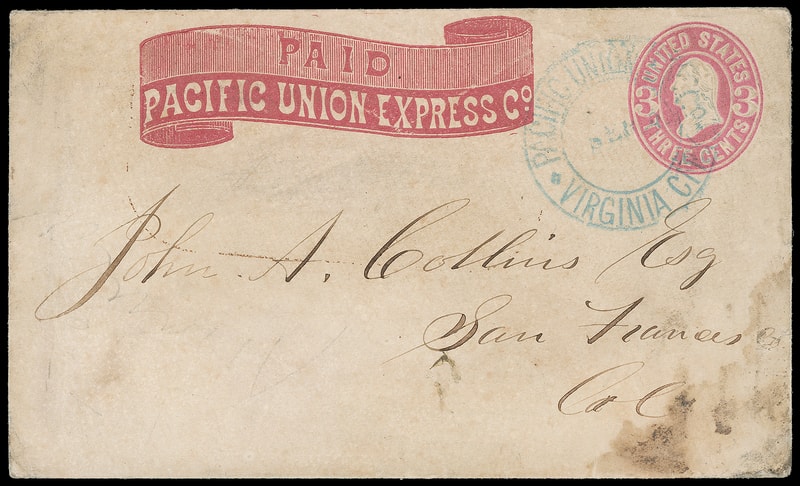 PAID
PACIFIC UNION EXPRESS Co
UNITED STATES
3 3
THREE CENTS
PACIFIC UNION
VIRGINIA CITY
John A. Collins Esq
San Francisco
Cal